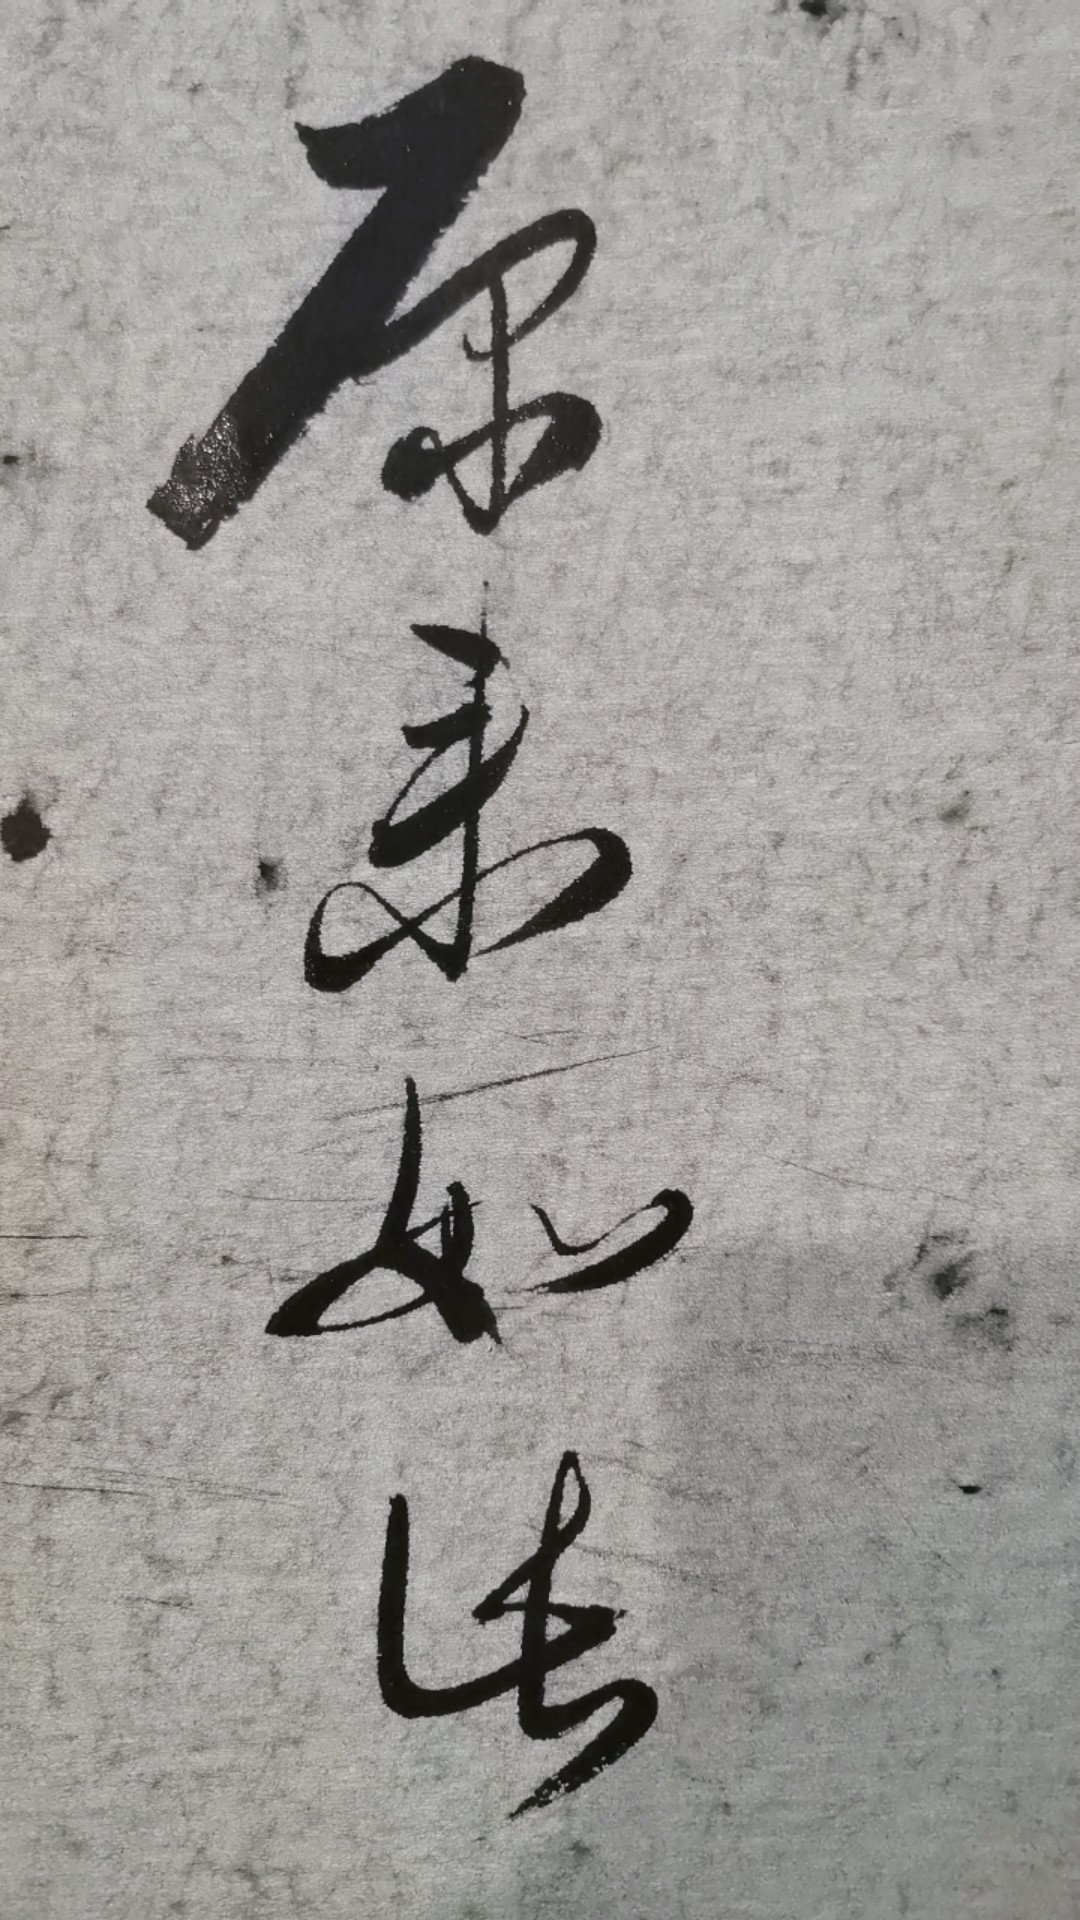 原来如此